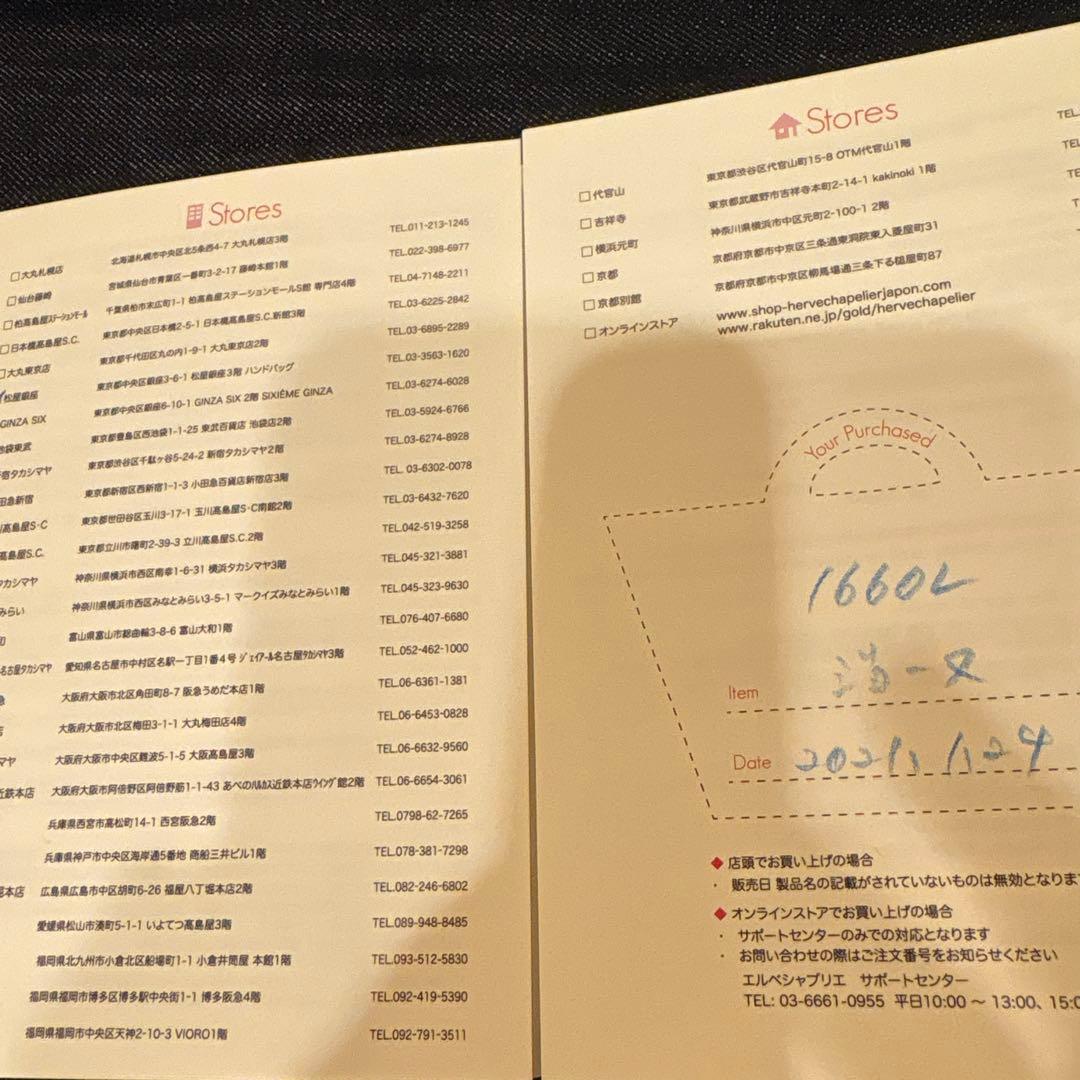 Stores
□大丸札幌店 北海道札幌市中央区北5条西4-7 大丸札幌店3階 TEL.011-213-1245
□仙台藤崎 宮城県仙台市青葉区一番町3-2-17 藤崎本館1階 TEL.022-398-6977
□柏髙島屋ステーションモール 千葉県柏市末広町1-1 柏髙島屋ステーションモールS館 専門店4階 TEL.04-7148-2211
□日本橋髙島屋S.C. 東京都中央区日本橋2-5-1 日本橋髙島屋S.C.新館3階 TEL.03-6225-2842
□大丸東京店 東京都千代田区丸の内1-9-1 大丸東京店2階 TEL.03-6895-2289
松屋銀座 東京都中央区銀座3-6-1 松屋銀座3階 ハンドバッグ TEL.03-3563-1620
GINZA SIX 東京都中央区銀座6-10-1 GINZA SIX 2階 SIXIÈME GINZA TEL.03-6274-6028
池袋東武 東京都豊島区西池袋1-1-25 東武百貨店 池袋店2階 TEL.03-5924-6766
宿タカシマヤ 東京都渋谷区千駄ヶ谷5-24-2 新宿タカシマヤ2階 TEL.03-6274-8928
田急新宿 東京都新宿区西新宿1-1-3 小田急百貨店新宿店3階 TEL. 03-6302-0078
髙島屋S・C 東京都世田谷区玉川3-17-1 玉川髙島屋S・C南館2階 TEL.03-6432-7620
髙島屋S.C. 東京都立川市曙町2-39-3 立川髙島屋S.C.2階 TEL.042-519-3258
タカシマヤ 神奈川県横浜市西区南幸1-6-31 横浜タカシマヤ3階 TEL.045-321-3881
みらい 神奈川県横浜市西区みなとみらい3-5-1 マークイズみなとみらい1階 TEL.045-323-9630
和 富山県富山市総曲輪3-8-6 富山大和1階 TEL.076-407-6680
名古屋タカシマヤ 愛知県名古屋市中村区名駅一丁目1番4号 ジェイアール名古屋タカシマヤ3階 TEL.052-462-1000
急 大阪府大阪市北区角田町8-7 阪急うめだ本店1階 TEL.06-6361-1381
店 大阪府大阪市北区梅田3-1-1 大丸梅田店4階 TEL.06-6453-0828
マヤ 大阪府大阪市中央区難波5-1-5 大阪髙島屋3階 TEL.06-6632-9560
近鉄本店 大阪府大阪市阿倍野区阿倍野筋1-1-43 あべのハルカス近鉄本店ウイング館2階 TEL.06-6654-3061
兵庫県西宮市高松町14-1 西宮阪急2階 TEL.0798-62-7265
兵庫県神戸市中央区海岸通5番地 商船三井ビル1階 TEL.078-381-7298
堀本店 広島県広島市中区胡町6-26 福屋八丁堀本店2階 TEL.082-246-6802
愛媛県松山市湊町5-1-1 いよてつ髙島屋3階 TEL.089-948-8485
福岡県北九州市小倉北区船場町1-1 小倉井筒屋 本館1階 TEL.093-512-5830
福岡県福岡市博多区博多駅中央街1-1 博多阪急4階 TEL.092-419-5390
福岡県福岡市中央区天神2-10-3 VIORO1階 TEL.092-791-3511
Stores
□代官山 東京都渋谷区代官山町15-8 OTM代官山1階 TEL.
□吉祥寺 東京都武蔵野市吉祥寺本町2-14-1 kakinoki 1階 TEL
□横浜元町 神奈川県横浜市中区元町2-100-1 2階 TE
□京都 京都府京都市中京区三条通東洞院東入菱屋町31 T
□京都別館 京都府京都市中京区柳馬場通三条下る槌屋町87
□オンラインストア www.shop-hervechapelierjapon.com
www.rakuten.ne.jp/gold/hervechapelier
Your Purchased
1660L
Item
Date 2021、1、24
◆ 店頭でお買い上げの場合
・ 販売日 製品名の記載がされていないものは無効となりま
◆ オンラインストアでお買い上げの場合
・ サポートセンターのみでの対応となります
・ お問い合わせの際はご注文番号をお知らせください
エルベシャプリエ サポートセンター
TEL: 03-6661-0955 平日10:00 ～ 13:00、15:0